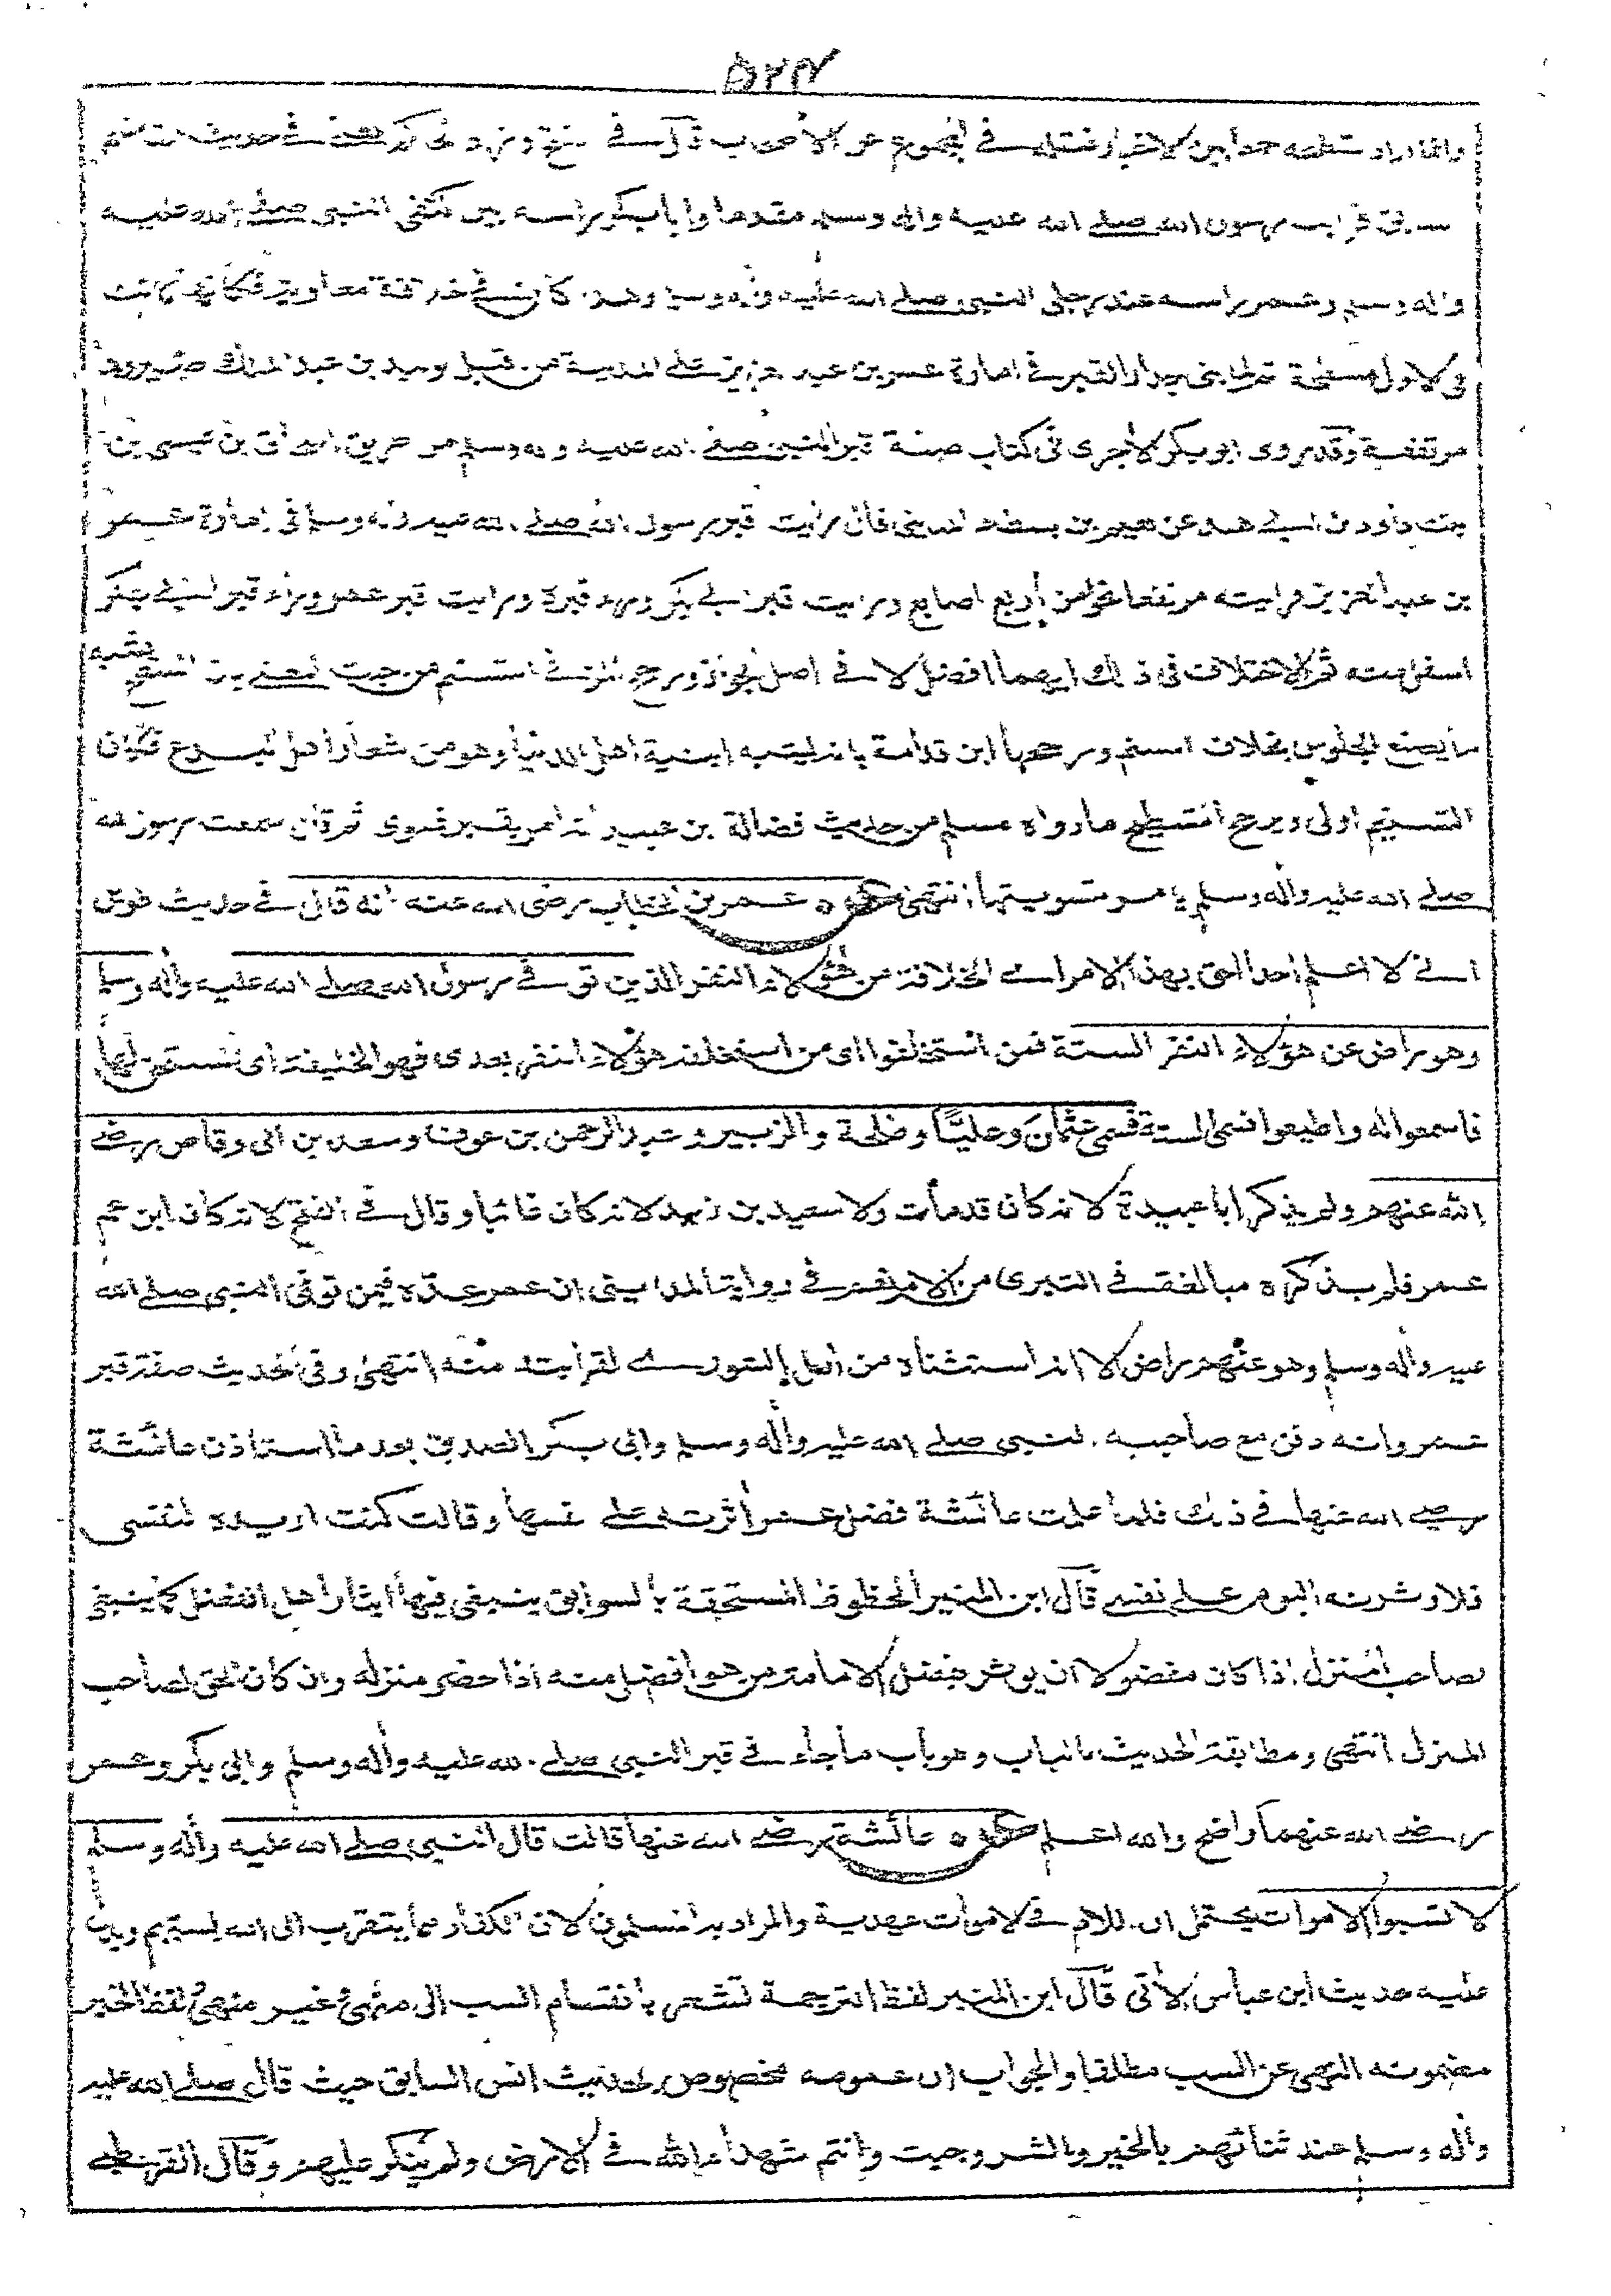 ۵۲۷
في الأصحاب قال في الفتح
رسول الله صلے الله عليه واله وسلم مقدما وابابكر راسه بين كتفي النبي صلے الله عليه
واله وسلم وعمر راسه عند رجلي النبي صلے الله عليه واله وسلم وهذا كان في خلافة معاوية فكانها كانت
في الاول مسطحة ثم لما بني جدار القبر في امارة عمر بن عبد العزيز على المدينة من قبل الوليد بن عبد الملك صيروها
مرتفعة وقد روى ابو بكر الآجرى في كتاب صفة قبر النبي صلے الله عليه واله وسلم من طريق اسحاق بن عيسى بن
بنت داود بن ابي هند عن نعيم بن بسطام المديني قال رايت قبر رسول الله صلے الله عليه واله وسلم في امارة عمر
بن عبد العزيز فرايته مرتفعا نحوا من أربع اصابع ورايت قبر ابي بكر وراء قبره ورايت قبر عمر وراء قبر ابي بكر
اسفل منه ثم الاختلاف في ذلك ايهما افضل لا في اصل الجواز ورجح المزني التسنيم من حيث المعنى بان المسطح يشبه
ما يصنع للجلوس بخلاف المسنم ورجحه ابن قدامة بانه يشبه ابنية اهل الدنيا وهو من شعار اهل البدع فكان
التسنيم اولى ويرجح التسطيح ما رواه مسلم من حديث فضالة بن عبيد انه امر بقبر فسوى ثم قال سمعت رسول الله
صلے الله عليه واله وسلم يامر بتسويتها انتهى عن عمر بن الخطاب رضى الله عنه انه قال في حديث طويل
اني لا اعلم احدا احق بهذا الامر اى الخلافة من هؤلاء النفر الذين توفي رسول الله صلے الله عليه واله وسلم
وهو راض عن هؤلاء النفر الستة فمن استخلفوا اى من استخلفه هؤلاء النفر بعدى فهو الخليفة اى المستحق لها
فاسمعوا له واطيعوا فسمى الستة فسمى عثمان وعليا وطلحة والزبير وعبد الرحمن بن عوف وسعد بن ابي وقاص رضي
الله عنهم ولم يذكر ابا عبيدة لانه كان قد مات ولا سعيد بن زيد لانه كان غائبا وقال في الفتح لانه كان ابن عم
عمر فلم يذكره مبالغة في التبرى من الامر نعم في رواية المدايني ان عمر عده فيمن توفي النبي صلے الله
عليه واله وسلم وهو عنهم راض الا انه استثناه من اهل الشورى لقرابته منه انتهى وفي الحديث صفة قبر
عمر وانه دفن مع صاحبيه النبي صلے الله عليه واله وسلم وابي بكر الصديق بعد ما استاذن عائشة
رضي الله عنها في ذلك فلما علمت عائشة فضل عمر أثرته على نفسها وقالت كنت اريده لنفسي
فلاوثرنه اليوم على نفسي قال ابن المنير الحظوظ المستحقة بالسوابق ينبغي فيها ايثار اهل الفضل كما ينبغي
لصاحب المنزل اذا كان مفضولا ان يوثر بفضل الامامة من هو افضل منه اذا حضر منزله وان كان الحق لصاحب
المنزل انتهى ومطابقة الحديث بالباب وهو باب ما جاء في قبر النبي صلے الله عليه واله وسلم وابي بكر وعمر
رضي الله عنهما واضح والله اعلم عن عائشة رضي الله عنها قالت قال النبي صلے الله عليه واله وسلم
لا تسبوا الاموات يحتمل ان اللام في الاموات عهدية والمراد به المسلمون لان الكفار مما يتقرب الى الله بسبهم ويدل
عليه حديث ابن عباس الآتي قال ابن المنير لفظ الترجمة تشعر بانقسام السب الى منهي وغير منهي ولفظ الخبر
مضمونه النهي عن السب مطلقا والجواب ان عمومه مخصوص بحديث انس السابق حيث قال صلے الله عليه
واله وسلم عند ثنائهم بالخير وبالشر وجبت وانتم شهداء الله في الارض ولم ينكر عليهم وقال القرطبي